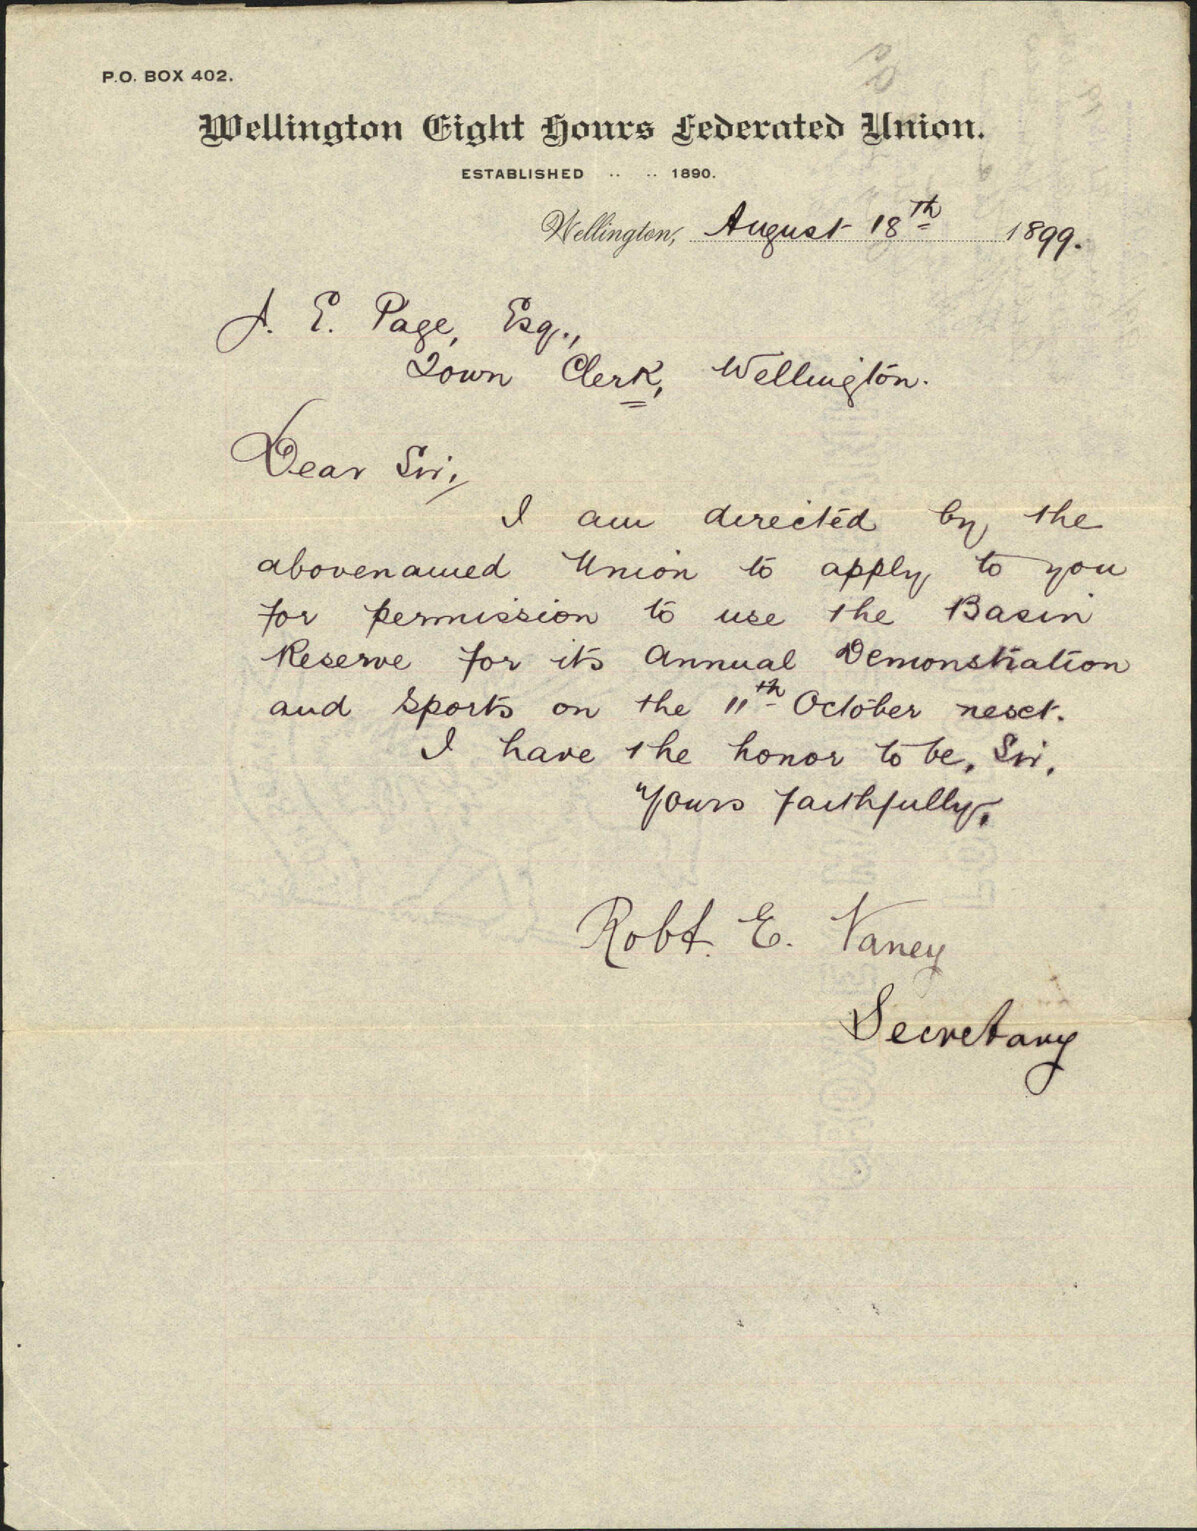 P.O. BOX 402.
Wellington Eight Hours Federated Union.
ESTABLISHED .. .. 1890.
Wellington, August 18th 1899.
J. E. Page, Esq.,
Town Clerk, Wellington.
Dear Sir,
I am directed by the
abovenamed Union to apply to you
for permission to use the Basin
Reserve for its Annual Demonstration
and Sports on the 11th October next.
I have the honor to be, Sir,
Yours faithfully,
Robt. E. Vaney
Secretary